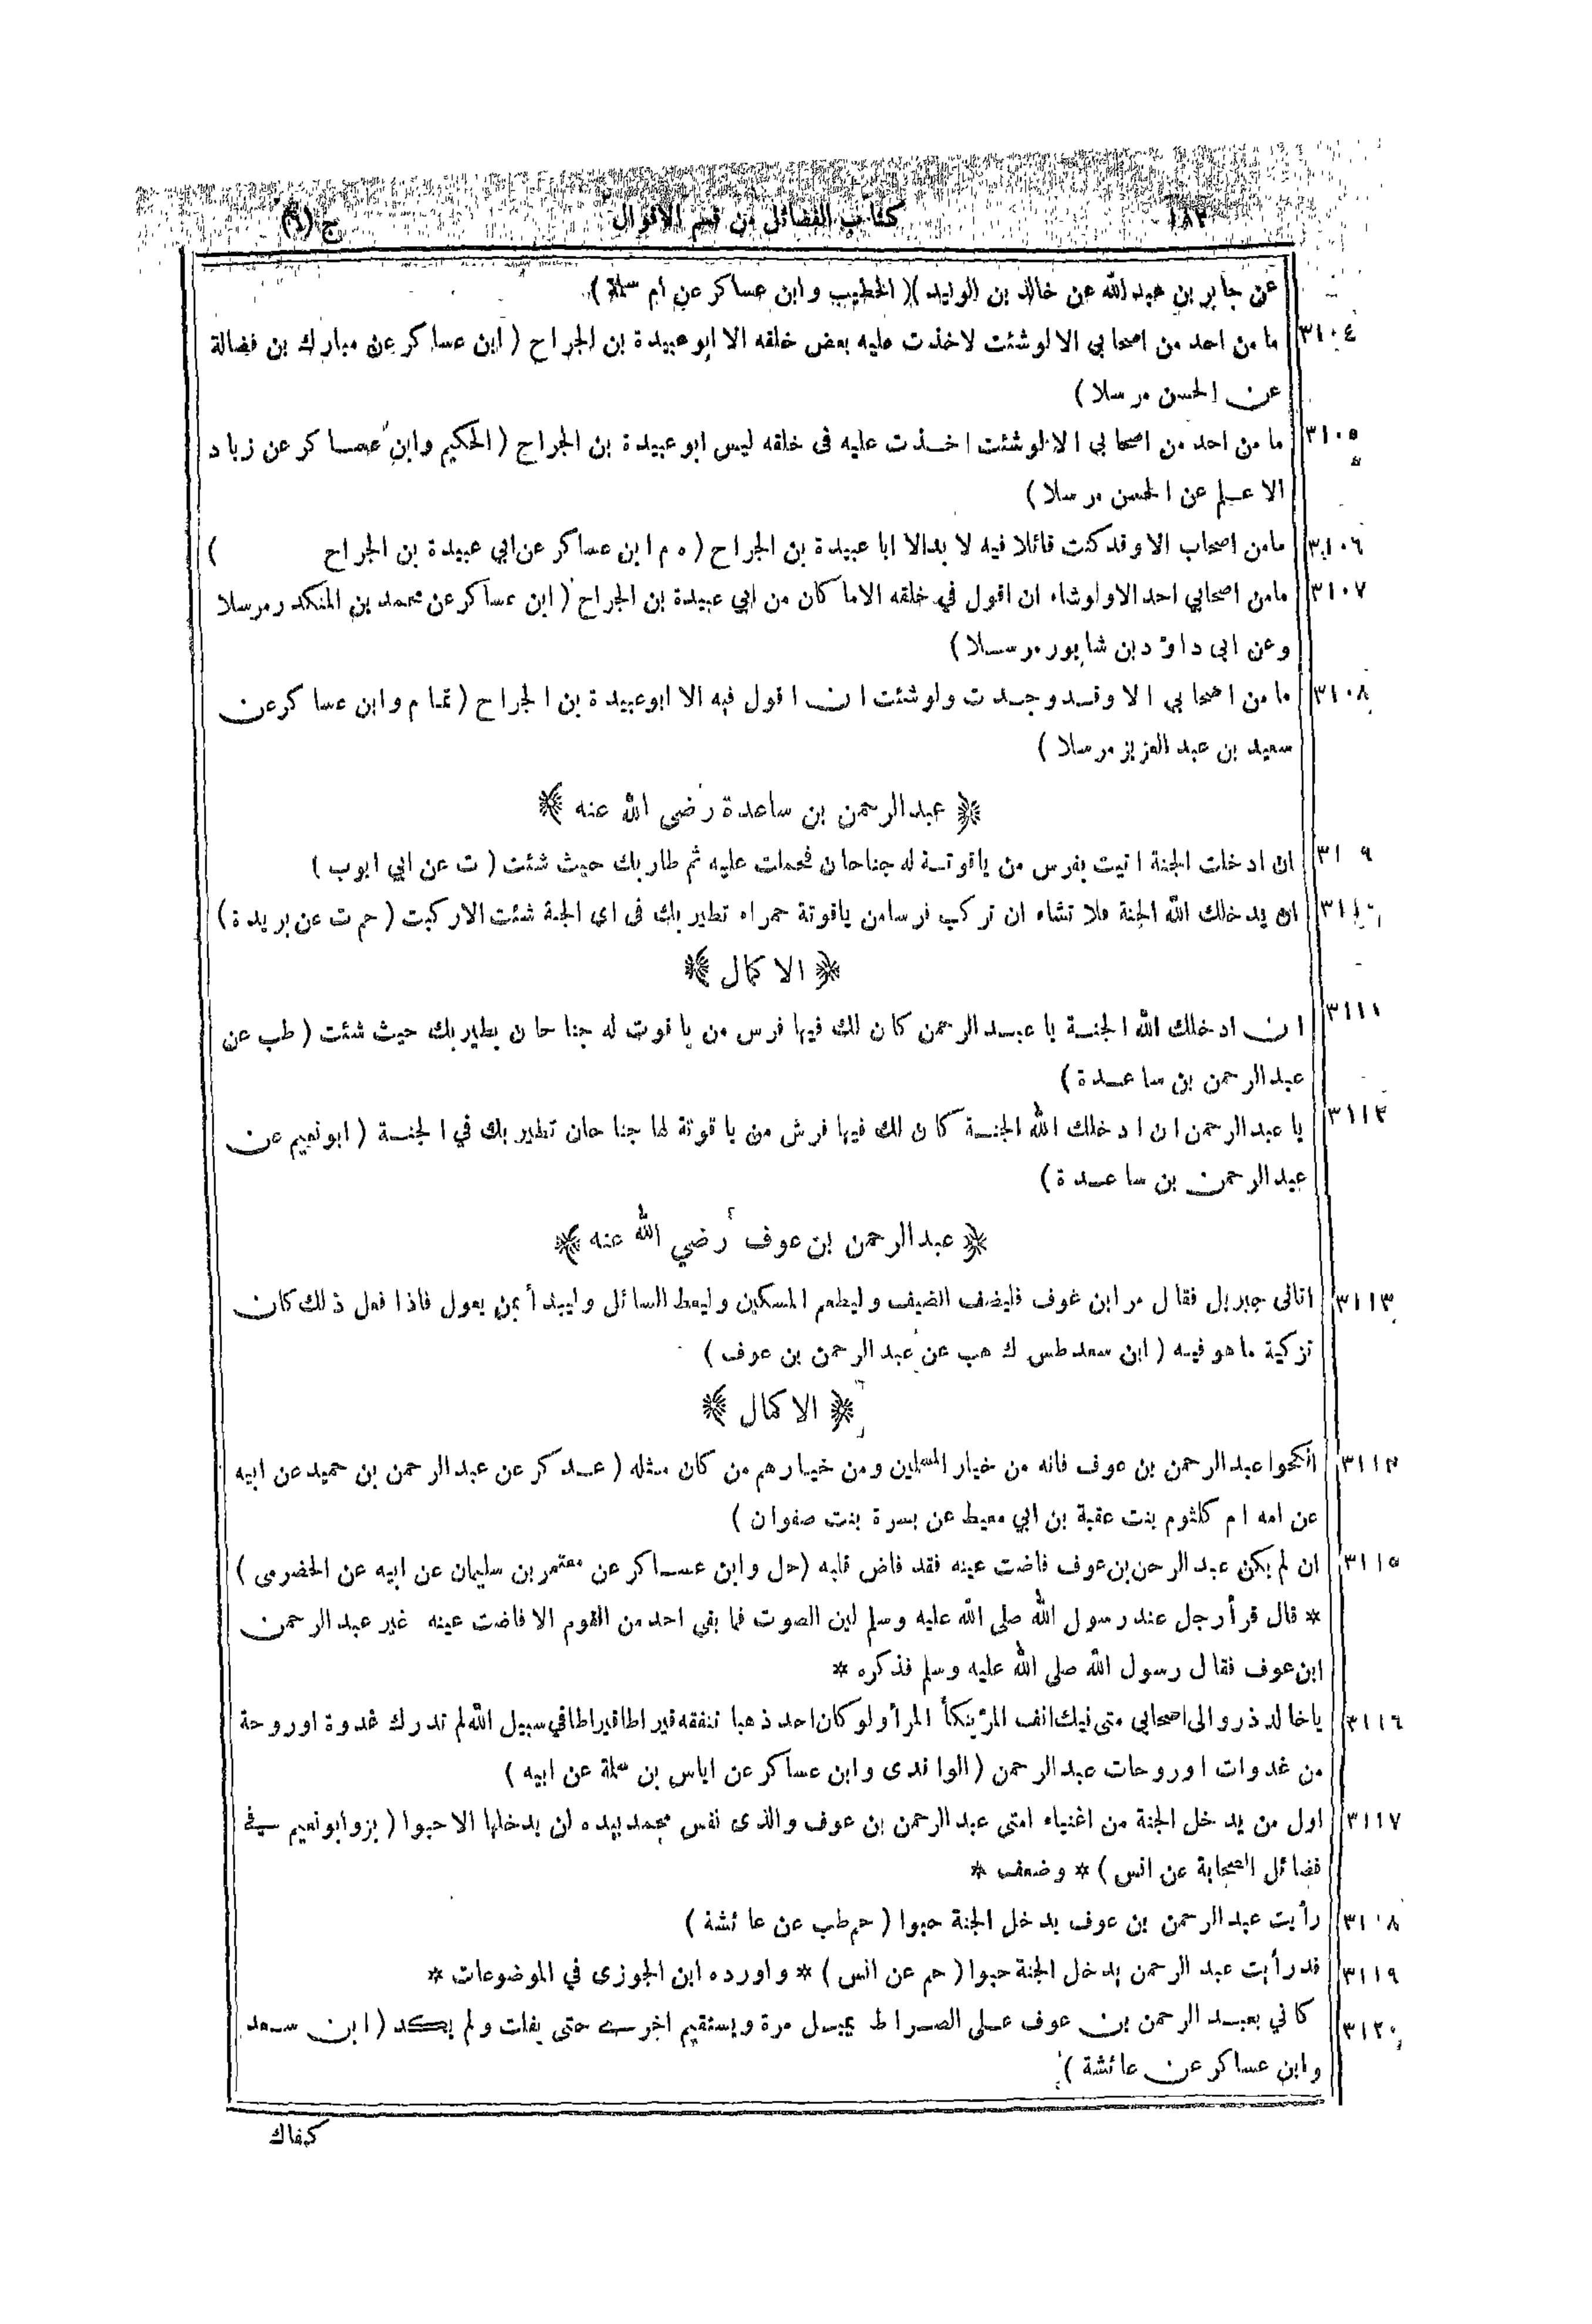 ١٨٢ كتاب الفضائل من قسم الاقوال ج (٦)
عن جابر بن عبدالله عن خالد بن الوليد)( الخطيب وابن عساكر عن ام سلمة)
٣١٠٤ ما من احد من اصحابي الا لو شئت لاخذت عليه بعض خلقه الا ابو عبيدة بن الجراح ( ابن عساكر عن مبارك بن فضالة
عن الحسن مرسلا )
٣١٠٥ ما من احد من اصحابي الا لو شئت اخذت عليه فى خلقه ليس ابو عبيدة بن الجراح ( الحكيم وابن عساكر عن زياد
الاعلم عن الحسن مرسلا )
٣١٠٦ مامن اصحاب الا وقد كنت قائلا فيه لا بدالا ابا عبيدة بن الجراح ( ابن عساكر عن ابي عبيدة بن الجراح )
٣١٠٧ مامن اصحابي احد الا ولو شاء ان اقول في خلقه الاما كان من ابي عبيدة بن الجراح ( ابن عساكر عن محمد بن المنكدر مرسلا
وعن ابى داؤد بن شابور مرسلا )
٣١٠٨ ما من اصحابي الا وقد وجدت ولو شئت ان اقول فيه الا ابو عبيدة بن الجراح ( تمام وابن عساكر عن
سعيد بن عبد العزيز مرسلا )
﴿ عبدالرحمن بن ساعدة رضى الله عنه ﴾
٣١ ٩ ان ادخلت الجنة اتيت بفرس من ياقوتة له جناحان فحملت عليه ثم طار بك حيث شئت ( ت عن ابي ايوب )
٣١١٠ ان يدخلك الله الجنة فلا تشاء ان تركب فرسا من ياقوتة حمراء تطير بك فى اى الجنة شئت الاركبت ( حم ت عن بريدة )
﴿ الاكمال ﴾
٣١١١ ان ادخلك الله الجنة يا عبد الرحمن كان لك فيها فرس من ياقوت له جناحان يطير بك حيث شئت ( طب عن
عبدالرحمن بن ساعدة )
٣١١٢ يا عبدالرحمن ان ادخلك الله الجنة كان لك فيها فرش من ياقوتة لها جناحان تطير بك في الجنة ( ابو نعيم عن
عبدالرحمن بن ساعدة )
﴿ عبدالرحمن بن عوف رضي الله عنه ﴾
٣١١٣ اتانى جبريل فقال مر ابن عوف فليضف الضيف وليطعم المسكين وليعط السائل وليبدأ بمن يعول فاذا فعل ذلك كان
تزكية ما هو فيه ( ابن سعد طس ك هب عن عبد الرحمن بن عوف )
﴿ الاكمال ﴾
٣١١٤ انكحوا عبدالرحمن بن عوف فانه من خيار المسلمين ومن خيارهم من كان مثله ( عد كر عن عبدالرحمن بن حميد عن ابيه
عن امه ام كلثوم بنت عقبة بن ابي معيط عن بسرة بنت صفوان )
٣١١٥ ان لم يكن عبد الرحمن بن عوف فاضت عينه فقد فاض قلبه ( حل وابن عساكر عن معتمر بن سليمان عن ابيه عن الحضرمى )
* قال قرأ رجل عند رسول الله صلى الله عليه وسلم لين الصوت فما بقي احد من القوم الا فاضت عينه غير عبد الرحمن
ابن عوف فقال رسول الله صلى الله عليه وسلم فذكره *
٣١١٦ يا خالد ذروا لى اصحابى متى انف المرأ ولو كان احد ذهبا تنفقه قيراطا قيراطا في سبيل الله لم تدرك غدوة او روحة
من غدوات او روحات عبدالرحمن ( الواقدى وابن عساكر عن اياس بن سلمة عن ابيه )
٣١١٧ اول من يدخل الجنة من اغنياء امتى عبدالرحمن بن عوف والذى نفس محمد بيده لن يدخلها الا حبوا ( بز وابو نعيم في
فضائل الصحابة عن انس ) * وضعف *
٣١١٨ رأيت عبدالرحمن بن عوف يدخل الجنة حبوا ( حم طب عن عائشة )
٣١١٩ قد رأيت عبد الرحمن يدخل الجنة حبوا ( حم عن انس ) * واورده ابن الجوزى في الموضوعات *
٣١٢٠ كاني بعبد الرحمن بن عوف على الصراط يميل مرة ويستقيم اخرى حتى يفلت ولم يكد ( ابن سعد
وابن عساكر عن عائشة )
كفاك